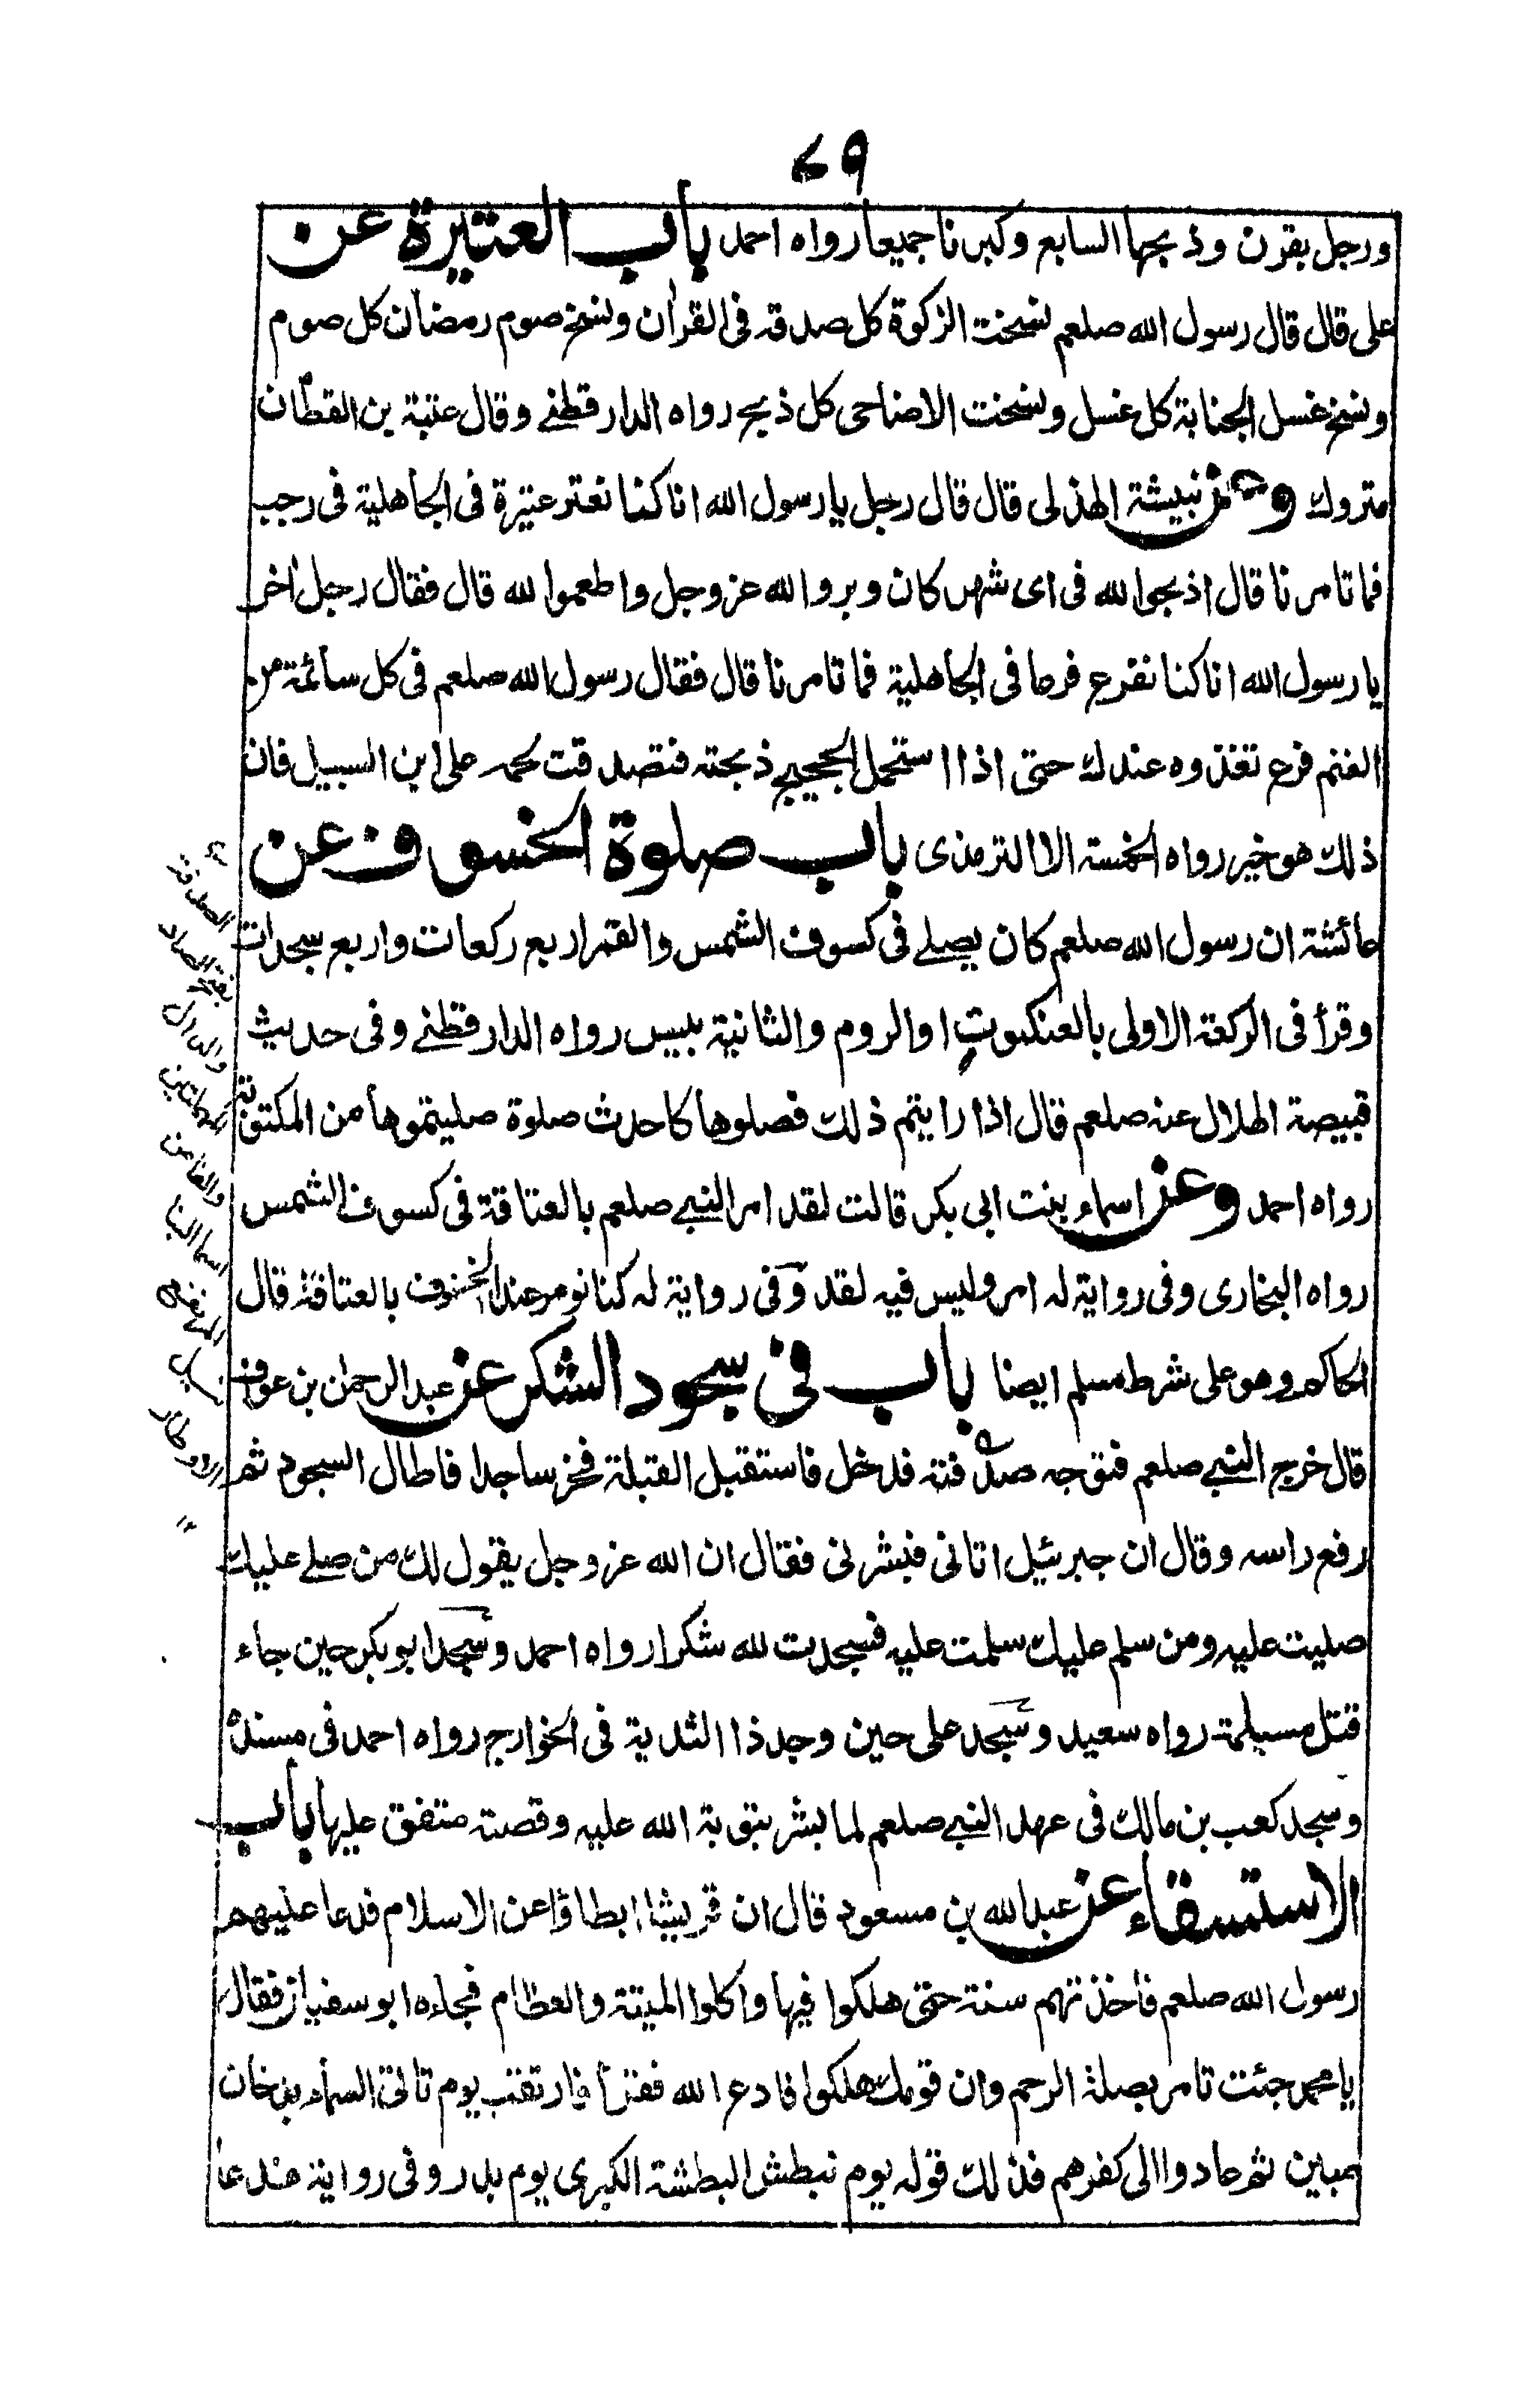 ٦٩
ورجل بقرن وذبحها السابع وكبرنا جميعا رواه احمد باب العتيرة عن
على قال قال رسول الله صلعم نسخت الزكوة كل صدقه فى القرآن ونسخ صوم رمضان كل صوم
ونسخ غسل الجنابة كل غسل ونسخت الاضاحى كل ذبح رواه الدار قطنے وقال عتبة بن القطان
متروك وعن نبيشة الهذلى قال قال رجل يا رسول الله انا كنا نعتر عتيرة فى الجاهلية فى رجب
فما تامرنا قال اذبحوا لله فى اى شهر كان وبروا لله عز وجل واطعموا لله قال فقال رجل اخر
يا رسول الله انا كنا نفرع فرعا فى الجاهلية فما تامرنا قال فقال رسول الله صلعم فى كل سائمة من
الغنم فرع تغذوه عندك حتى اذا استحمل الحجيج ذبحته فتصدقت بلحمه على ابن السبيل فان
ذلك هو خير رواه الخمسة الا الترمذى باب صلوة الخسوف عن
عائشة ان رسول الله صلعم كان يصلے فى كسوف الشمس والقمر اربع ركعات واربع سجدات
وقرأ فى الركعة الاولى بالعنكبوت او الروم والثانية بيس رواه الدار قطنے وفى حديث
قبيصة الهلال عنه صلعم قال اذا رايتم ذلك فصلوها كاحدث صلوة صليتموها من المكتوبة
رواه احمد وعن اسماء بنت ابى بكر قالت لقد امر النبے صلعم بالعتاقة فى كسوف الشمس
رواه البخارى وفى رواية له امر وليس فيه لقد وفى رواية له كنا نومر عند الخسوف بالعتاقة قال
الحاكم وهو على شرط مسلم ايضا باب فى سجود الشكر عن عبد الرحمن بن عوف
قال خرج النبے صلعم فتوجه صدفته فدخل فاستقبل القبلة فخر ساجدا فاطال السجود ثم
رفع راسه وقال ان جبرئيل اتانى فبشرنى فقال ان الله عز وجل يقول لك من صلے عليك
صليت عليه ومن سلم عليك سلمت عليه فسجدت لله شكرا رواه احمد وسجد ابو بكر حين جاء
قتل مسيلمة رواه سعيد وسجد على حين وجد ذا الثدية فى الخوارج رواه احمد فى مسنده
وسجد كعب بن مالك فى عهد النبے صلعم لما بشر بتوبة الله عليه وقصته متفق عليها باب
الاستسقاء عن عبد الله بن مسعود قال ان قريشا ابطاؤا عن الاسلام فدعا عليهم
رسول الله صلعم فاخذتهم سنة حتى هلكوا فيها واكلوا الميتة والعظام فجاءه ابو سفيان فقال
يا محمد جئت تامر بصلة الرحم وان قومك هلكوا فادع الله فقرأ فارتقب يوم تاتى السماء بدخان
مبين ثم عادوا الى كفرهم فذلك قوله يوم نبطش البطشة الكبرى يوم بدر وفى رواية فدعا
الصدقة
بفتح الصاد
والدال
المهملتين
والفا من
اسما البنا
المرتفع
نيل
الاوطار